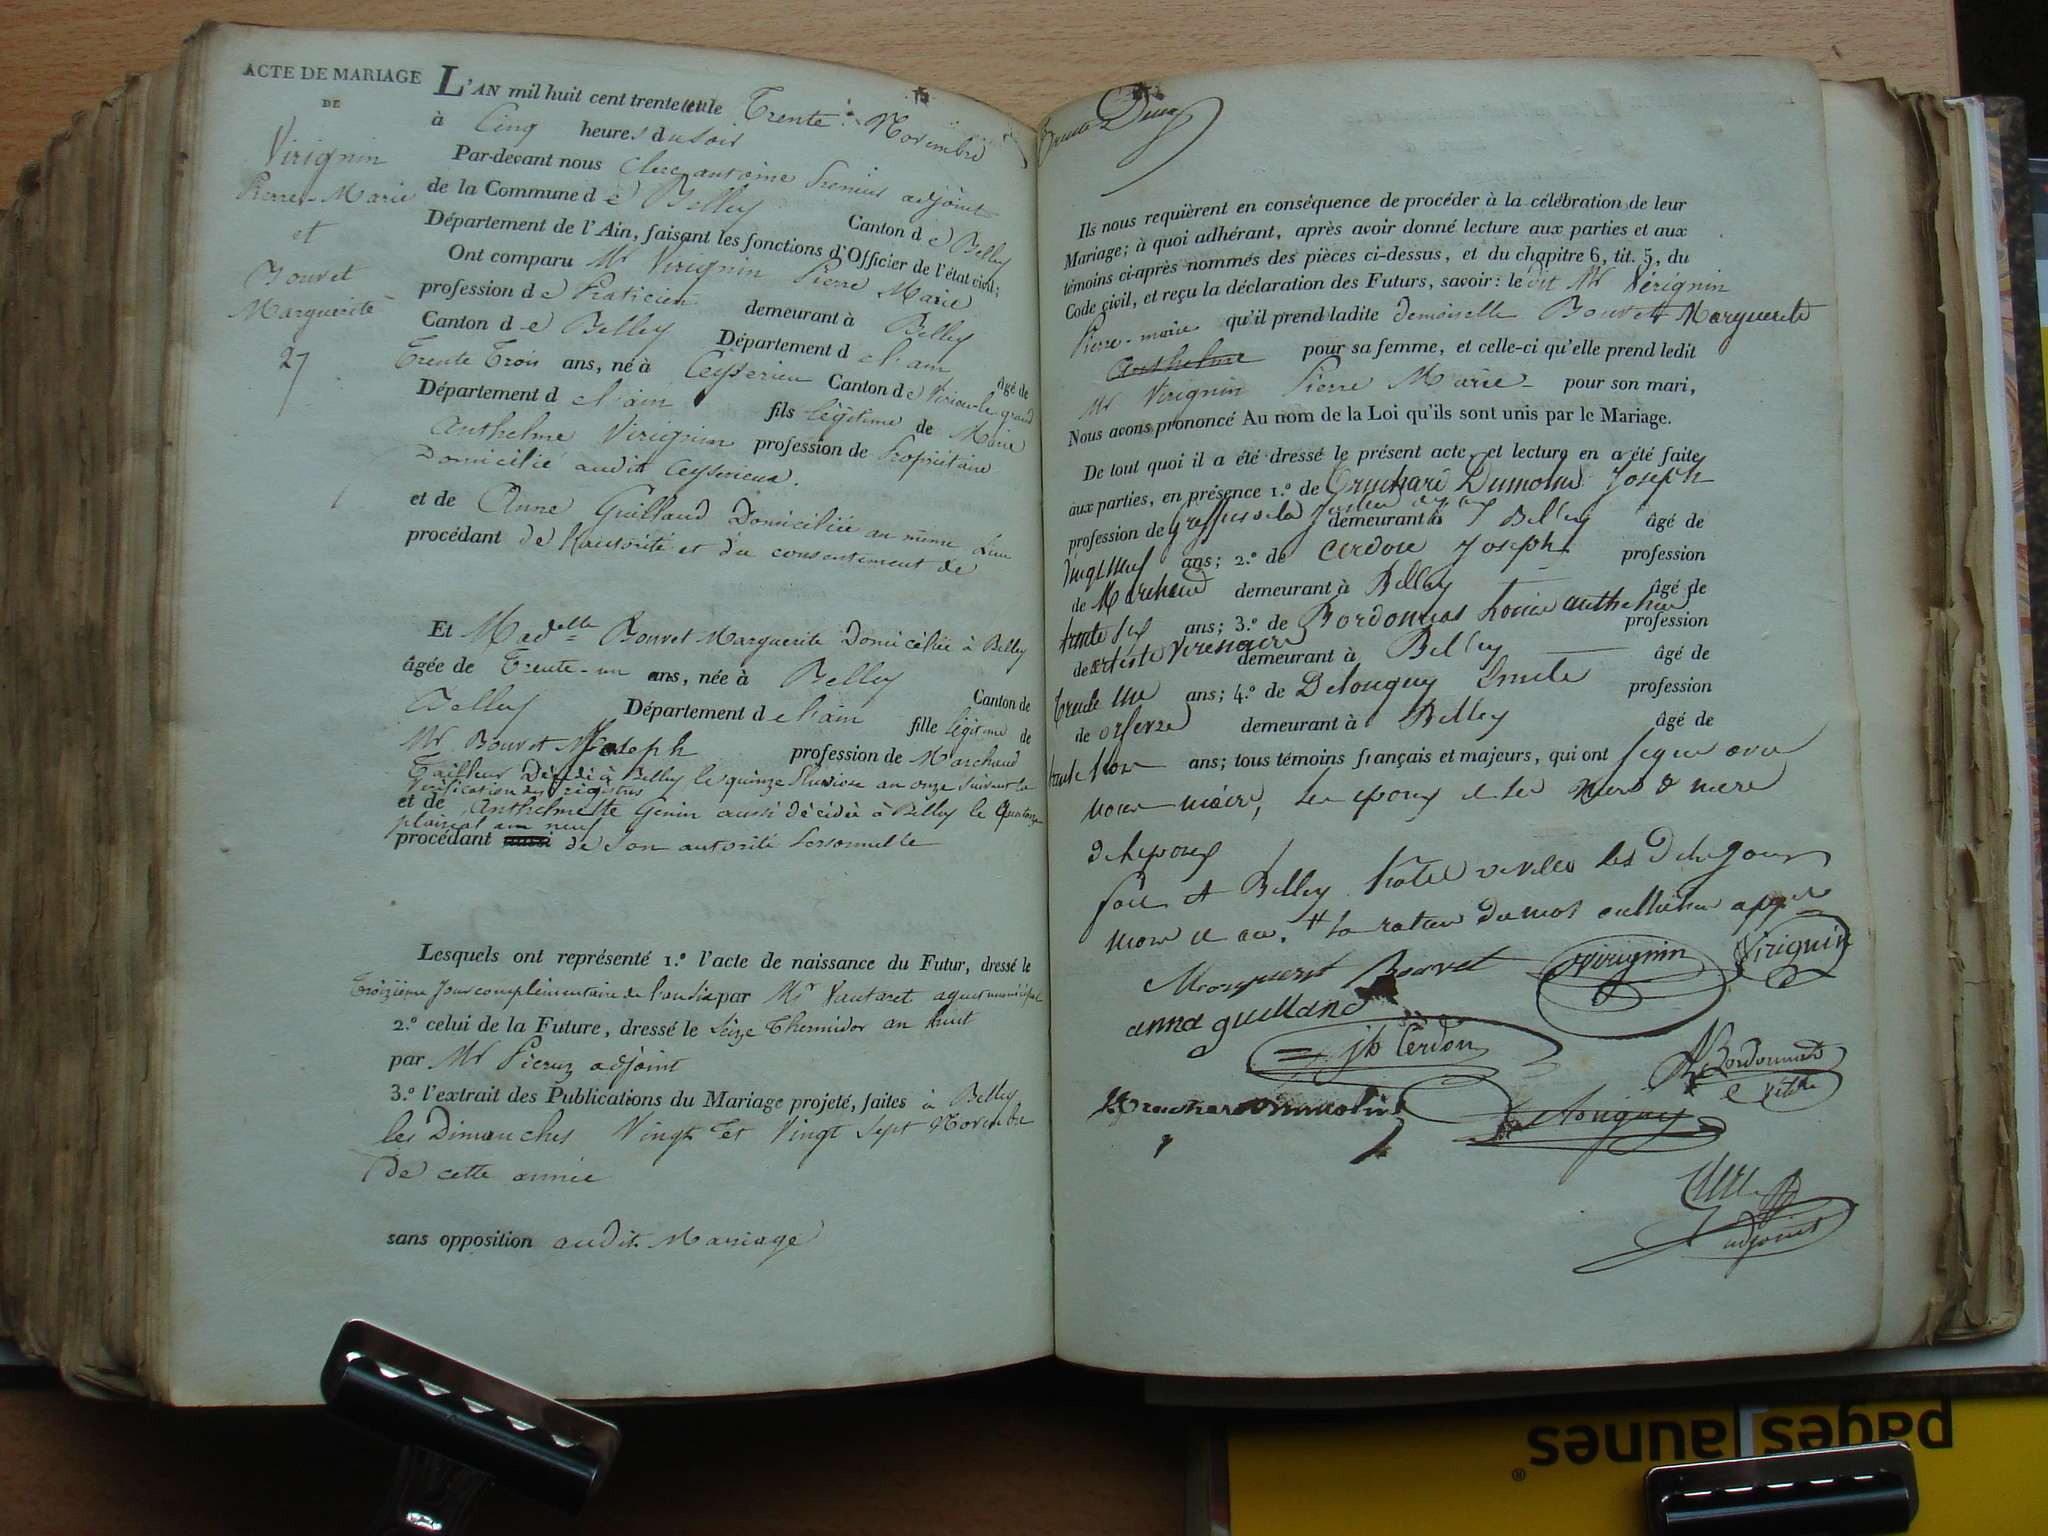 ACTE DE MARIAGE
DE
Virignin
Pierre-Marie
et
Bouvet
Marguerite
27
L'AN mil huit cent trente et le Trente Novembre
à Cinq heures du soir
Par-devant nous Clerc antoine premier adjoint
de la Commune de Belley Canton de Belley
Département de l'Ain, faisant les fonctions d'Officier de l'état civil;
Ont comparu Mr Virignin Pierre Marie
profession de Praticien demeurant à Belley
Canton de Belley Département de l'ain âgé de
Trente Trois ans, né à Ceyzerieu Canton de Virieu-le-grand
Département de l'ain fils légitime de Marie
Anthelme Virignin profession de Propriétaire
Domicilié audit Ceyzerieu.
et de Anne Guilland Domiciliée au même Lieu
procédant de l'autorité et du consentement de
Et Madelle Bouvet Marguerite Domiciliée à Belley
âgée de Trente-un ans, née à Belley Canton de
Belley Département de l'ain fille légitime de
Mr Bouvet Joseph profession de Marchand
Tailleur Décédé à Belley le quinze Pluviose an onze suivant la
vérification des registres
et de Anthelmette Genin aussi décédée à Belley le Quatorze
plairial an neuf
procédant de son autorité Personnelle
Lesquels ont représenté 1.° l'acte de naissance du Futur, dressé le
Troizième jour complémentaire de l'an six par Mr Vautaret agent municipal
2.° celui de la Future, dressé le Seize Thermidor an huit
par Mr adjoint
3.° l'extrait des Publications du Mariage projeté, faites à Belley
les Dimanches Vingt et Vingt Sept Novembre
de cette année
sans opposition audit Mariage
Trente Deux
Ils nous requièrent en conséquence de procéder à la célébration de leur
Mariage; à quoi adhérant, après avoir donné lecture aux parties et aux
témoins ci-après nommés des pièces ci-dessus, et du chapitre 6, tit. 5, du
Code civil, et reçu la déclaration des Futurs, savoir: le dit Mr Virignin
Pierre-marie qu'il prend ladite demoiselle Bouvet Marguerite
Anthelme pour sa femme, et celle-ci qu'elle prend ledit
Mr Virignin Pierre Marie pour son mari,
Nous avons prononcé Au nom de la Loi qu'ils sont unis par le Mariage.
De tout quoi il a été dressé le présent acte, et lecture en a été faite
aux parties, en présence 1.° de Truchard Dumolin Joseph
profession de demeurant à Belley âgé de
vingt neuf ans; 2.° de Cerdon Joseph profession
de Marchand demeurant à Belley âgé de
trente six ans; 3.° de Bordonnas Louis anthelme profession
de artiste Vétérinaire demeurant à Belley âgé de
Trente un ans; 4.° de profession
de orfevre demeurant à Belley âgé de
trente trois ans; tous témoins français et majeurs, qui ont signé avec
nous maire, les epoux et les pere & mere
de lepoux
fait A Belley hotel de ville les De jour
mois et an.
Marguerit Bouvet Virignin Virignin
anna guilland
jh Cerdon
Bordonnas
adjoint
pages jaunes